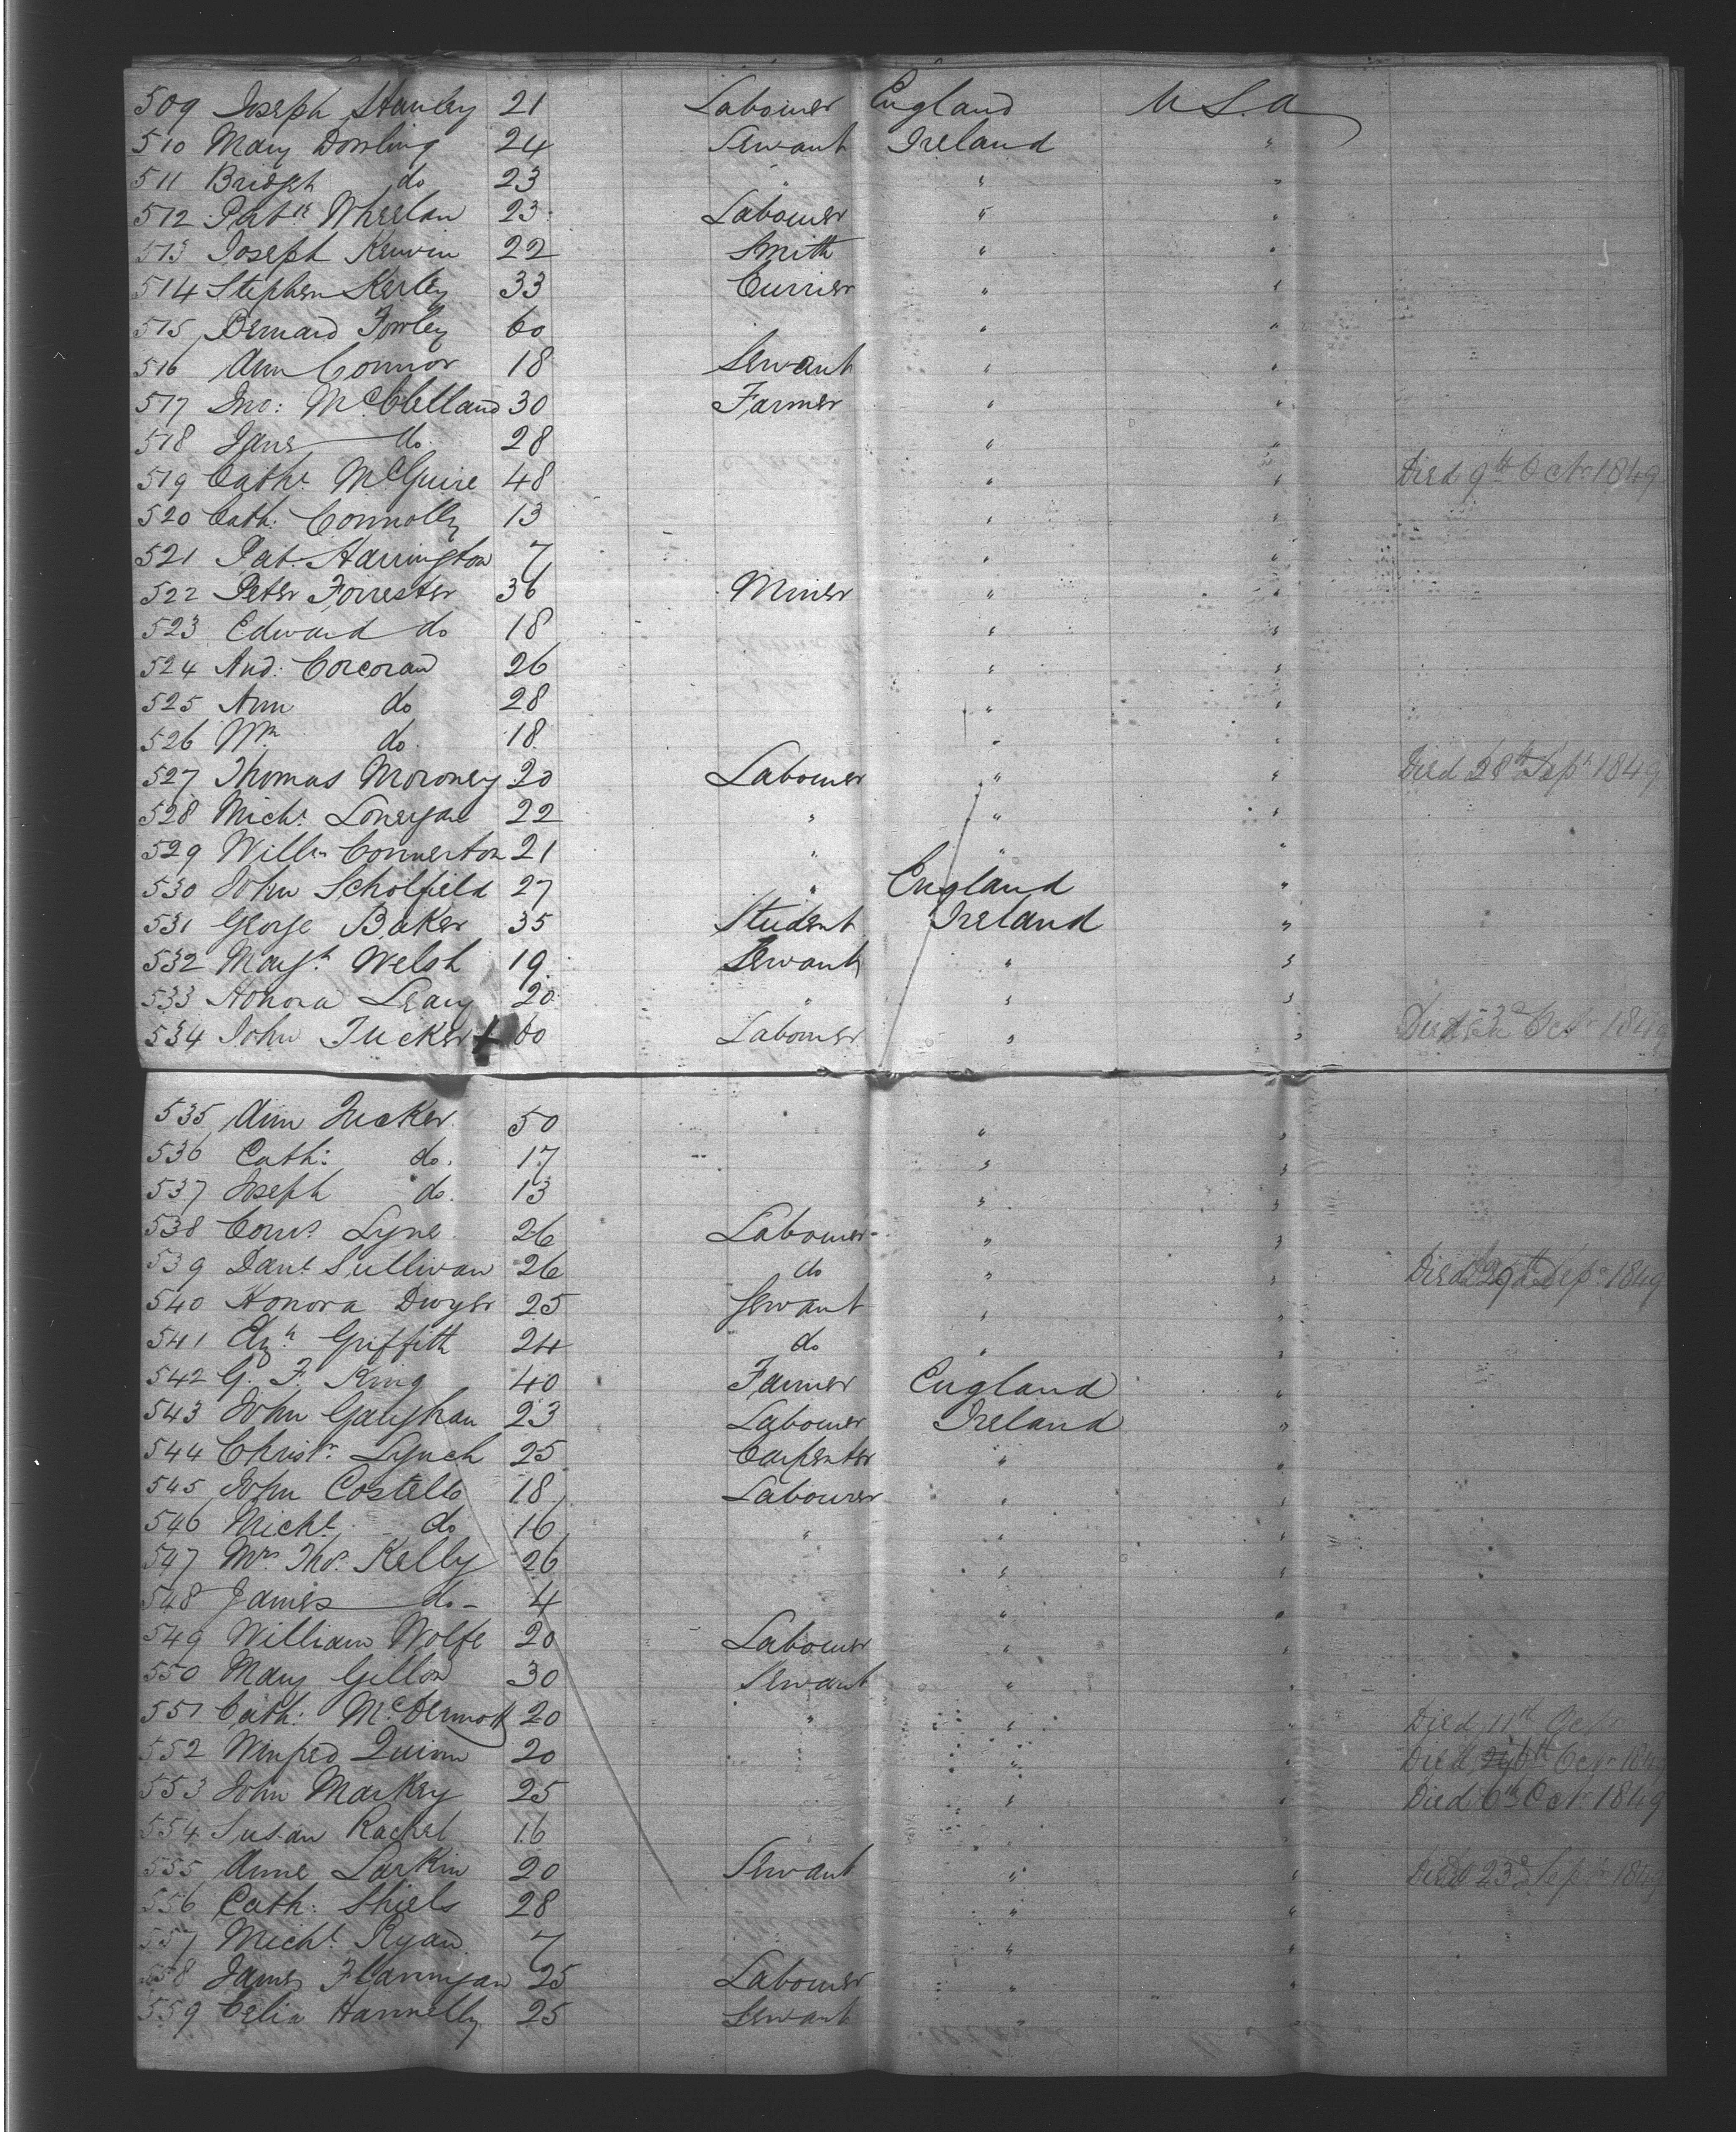 509 Joseph Stanley 21 Labourer England U.S.A
510 Mary Dowling 24 Servant Ireland "
511 Bridget do 23 " " "
512 Patk Whelan 23 Labourer " "
513 Joseph Kerwin 22 Smith " "
514 Stephen Kerley 33 Currier " "
515 Bernard Fowley 60 " "
516 Ann Connor 18 Servant " "
517 Jno: McClelland 30 Farmer " "
518 Jane do 28 " "
519 Cathe McGuire 48 " " Died 9th Octr 1849
520 Cath: Connolly 13 " "
521 Pat Harrington 7 " "
522 Peter Forrester 36 Miner " "
523 Edward do 18 " "
524 And: Corcoran 26 " "
525 Ann do 28 " "
526 Wm do 18 " "
527 Thomas Moroney 20 Labourer " " Died 28th Sept 1849
528 Michl Lonergan 22 " " "
529 Willm Connerton 21 " " "
530 John Scholfield 27 " England "
531 George Baker 35 Student Ireland "
532 Margt Welsh 19 Servant " "
533 Honora Leary 20 " " "
534 John Tucker + 60 Labourer " " Died Octr 1849
535 Ann Tucker 50 " "
536 Cath: do. 17 " "
537 Joseph do. 13 " "
538 Corns Lyne 26 Labourer " "
539 Danl Sullivan 26 do " " Died 29th Sepr 1849
540 Honora Dwyer 25 Servant " "
541 Elizh Griffith 24 do " "
542 G. F. King 40 Farmer England "
543 John Gaughan 23 Labourer Ireland "
544 Christr Lynch 25 Carpenter " "
545 John Costello 18 Labourer " "
546 Michl do 16 " " "
547 Mrs Thos. Kelly 26 " "
548 James do - 4 " "
549 William Wolfe 20 Labourer " "
550 Mary Gillon 30 Servant " "
551 Cath: McDermott 20 " " " Died 11th Octr
552 Winfred Quinn 20 " " Died Octr 1849
553 John Markey 25 " " Died 6th Octr 1849
554 Susan Rachel 16 " "
555 Anne Larkin 20 Servant " " Died 23d Sepr 1849
556 Cath: Shiels 28 " "
557 Michl Ryan 7 " "
558 James Flannigan 25 Labourer " "
559 Celia Hannelly 25 Servant "